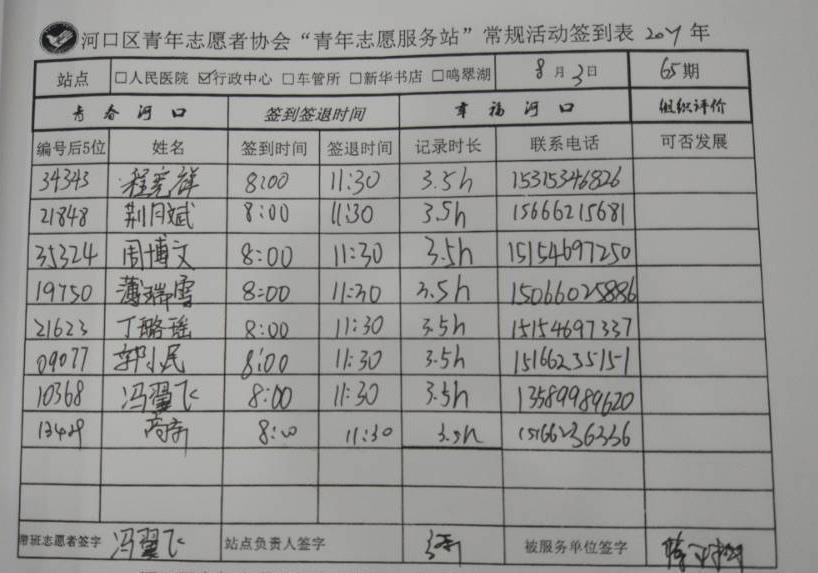 河口区青年志愿者协会“青年志愿服务站”常规活动签到表 2017 年
站点 □人民医院 ☑行政中心 □车管所 □新华书店 □鸣翠湖 8月3日 65期
青春河口 签到签退时间 幸福河口 组织评价
编号后5位 姓名 签到时间 签退时间 记录时长 联系电话 可否发展
34343 8:00 11:30 3.5h 15315346826
21848 荆月斌 8:00 11:30 3.5h 15666215681
35324 周博文 8:00 11:30 3.5h 15154697250
19750 薄瑞雪 8:00 11:30 3.5h 15066025886
21623 丁璐瑶 8:00 11:30 3.5h 15154697337
09077 郭小民 8:00 11:30 3.5h 15166235151
10368 冯翼飞 8:00 11:30 3.5h 13589989620
13429 8:00 11:30 3.5h 15166236336
带班志愿者签字 冯翼飞 站点负责人签字 被服务单位签字